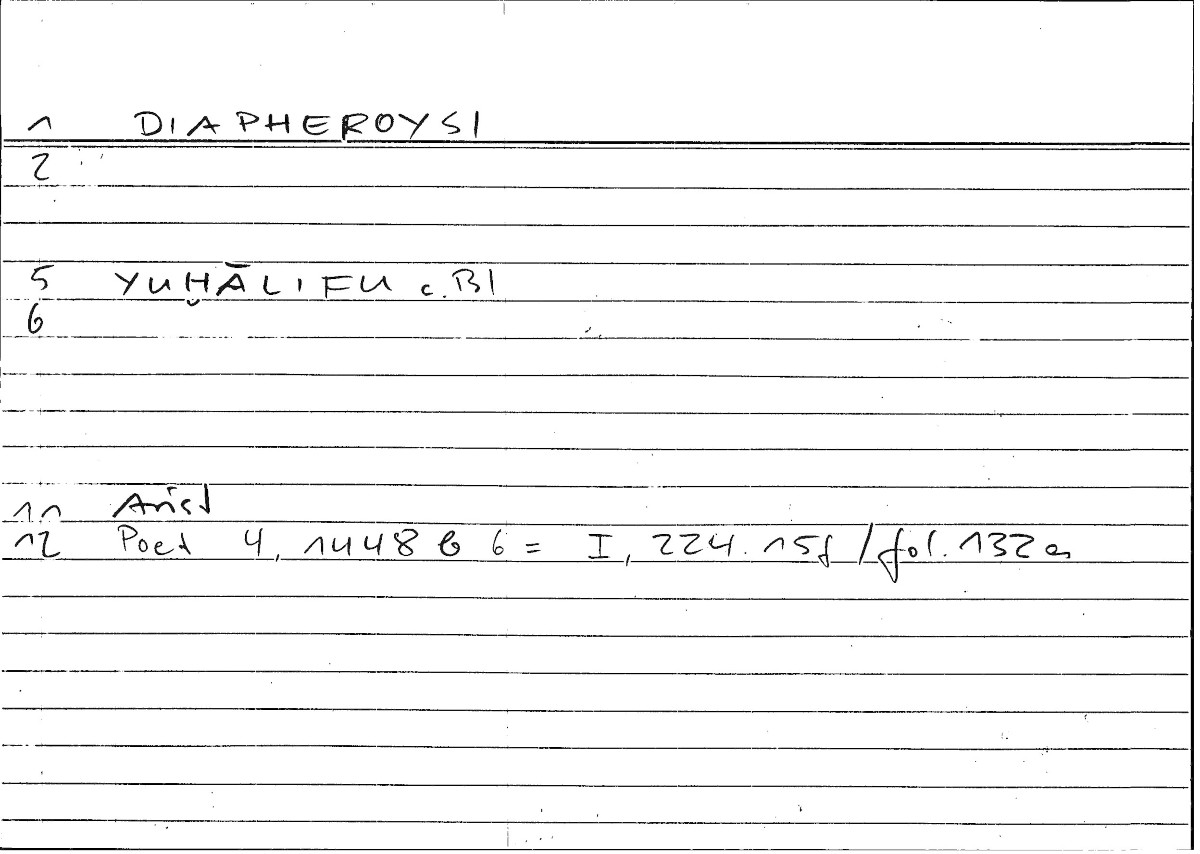 1 DIAPHEROYSI
2
5 YUḪĀLIFU c. BI
6
11 Arist
12 Poet 4, 1448 b 6 = I, 224.15f / fol. 132a